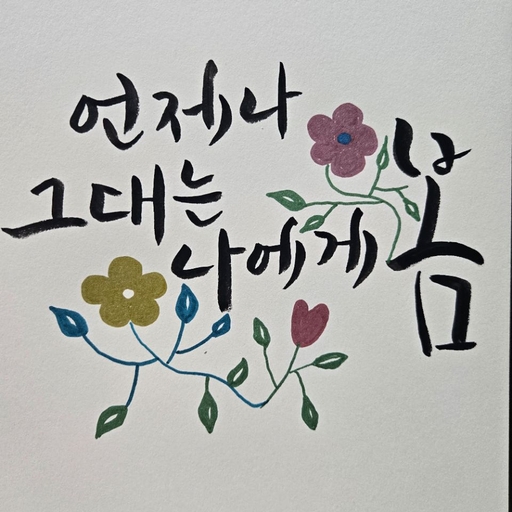 언제나
그대는
나에게 봄